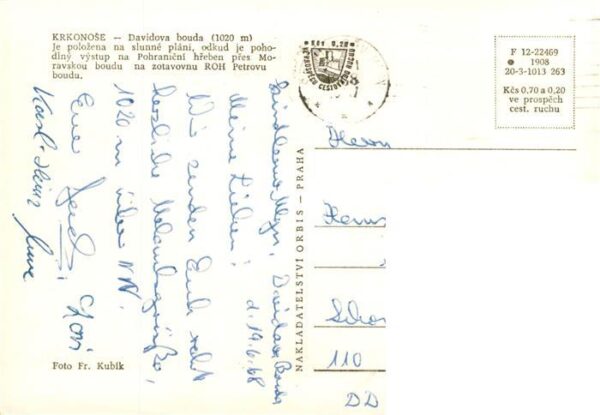 KRKONOŠE – Davidova bouda (1020 m)
Je položena na slunné pláni, odkud je poho-
dlný výstup na Pohraniční hřeben přes Mo-
ravskou boudu na zotavovnu ROH Petrovu
boudu.
F 12-22469
1908
20-3-1013 263
Kčs 0,70 a 0,20
ve prospěch
cest. ruchu
Kčs 0.20
VE PROSPĚCH CESTOVNÍHO RUCHU
Davidova Bouda
d. 14.6.68
Meine Lieben!
Wir senden Euch recht
herzliche
1020 m über NN.
Eure
Karl-Heinz
NAKLADATELSTVÍ ORBIS – PRAHA
Herrn
110
DD
Foto Fr. Kubík